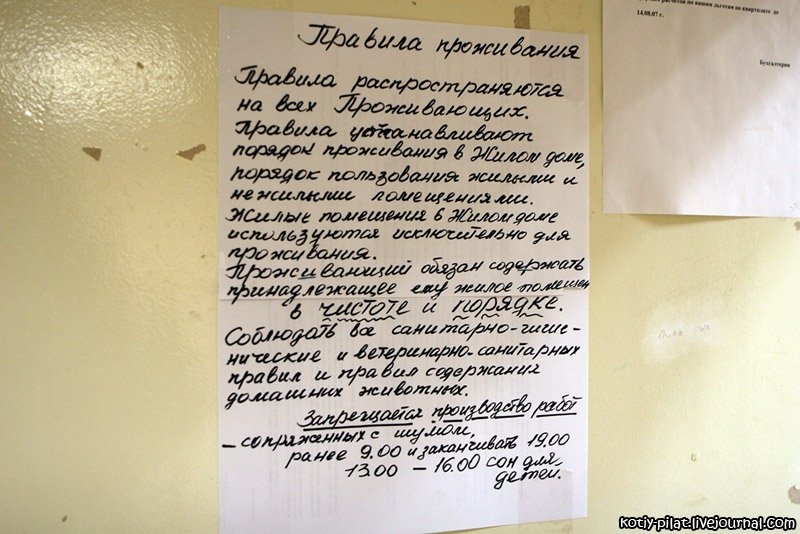 Правила проживания
Правила распространяются
на всех Проживающих.
Правила устанавливают
порядок проживания в Жилом доме,
порядок пользования жилыми и
нежилыми помещениями.
Жилые помещения в Жилом доме
используются исключительно для
проживания.
Проживающий обязан содержать
принадлежащее ему жилое помещен
в чистоте и порядке.
Соблюдать все санитарно-гигие-
нические и ветеринарно-санитарных
правил и правил содержания
домашних животных.
Запрещается производство работ
– сопряженных с шумом,
ранее 9.00 и заканчивать 19.00
13.00 – 16.00 сон для
детей.
расчетов по вашим льготам по квартплате до
14.08.07 г.
Бухгалтерия
kotiy-pilat.livejournal.com